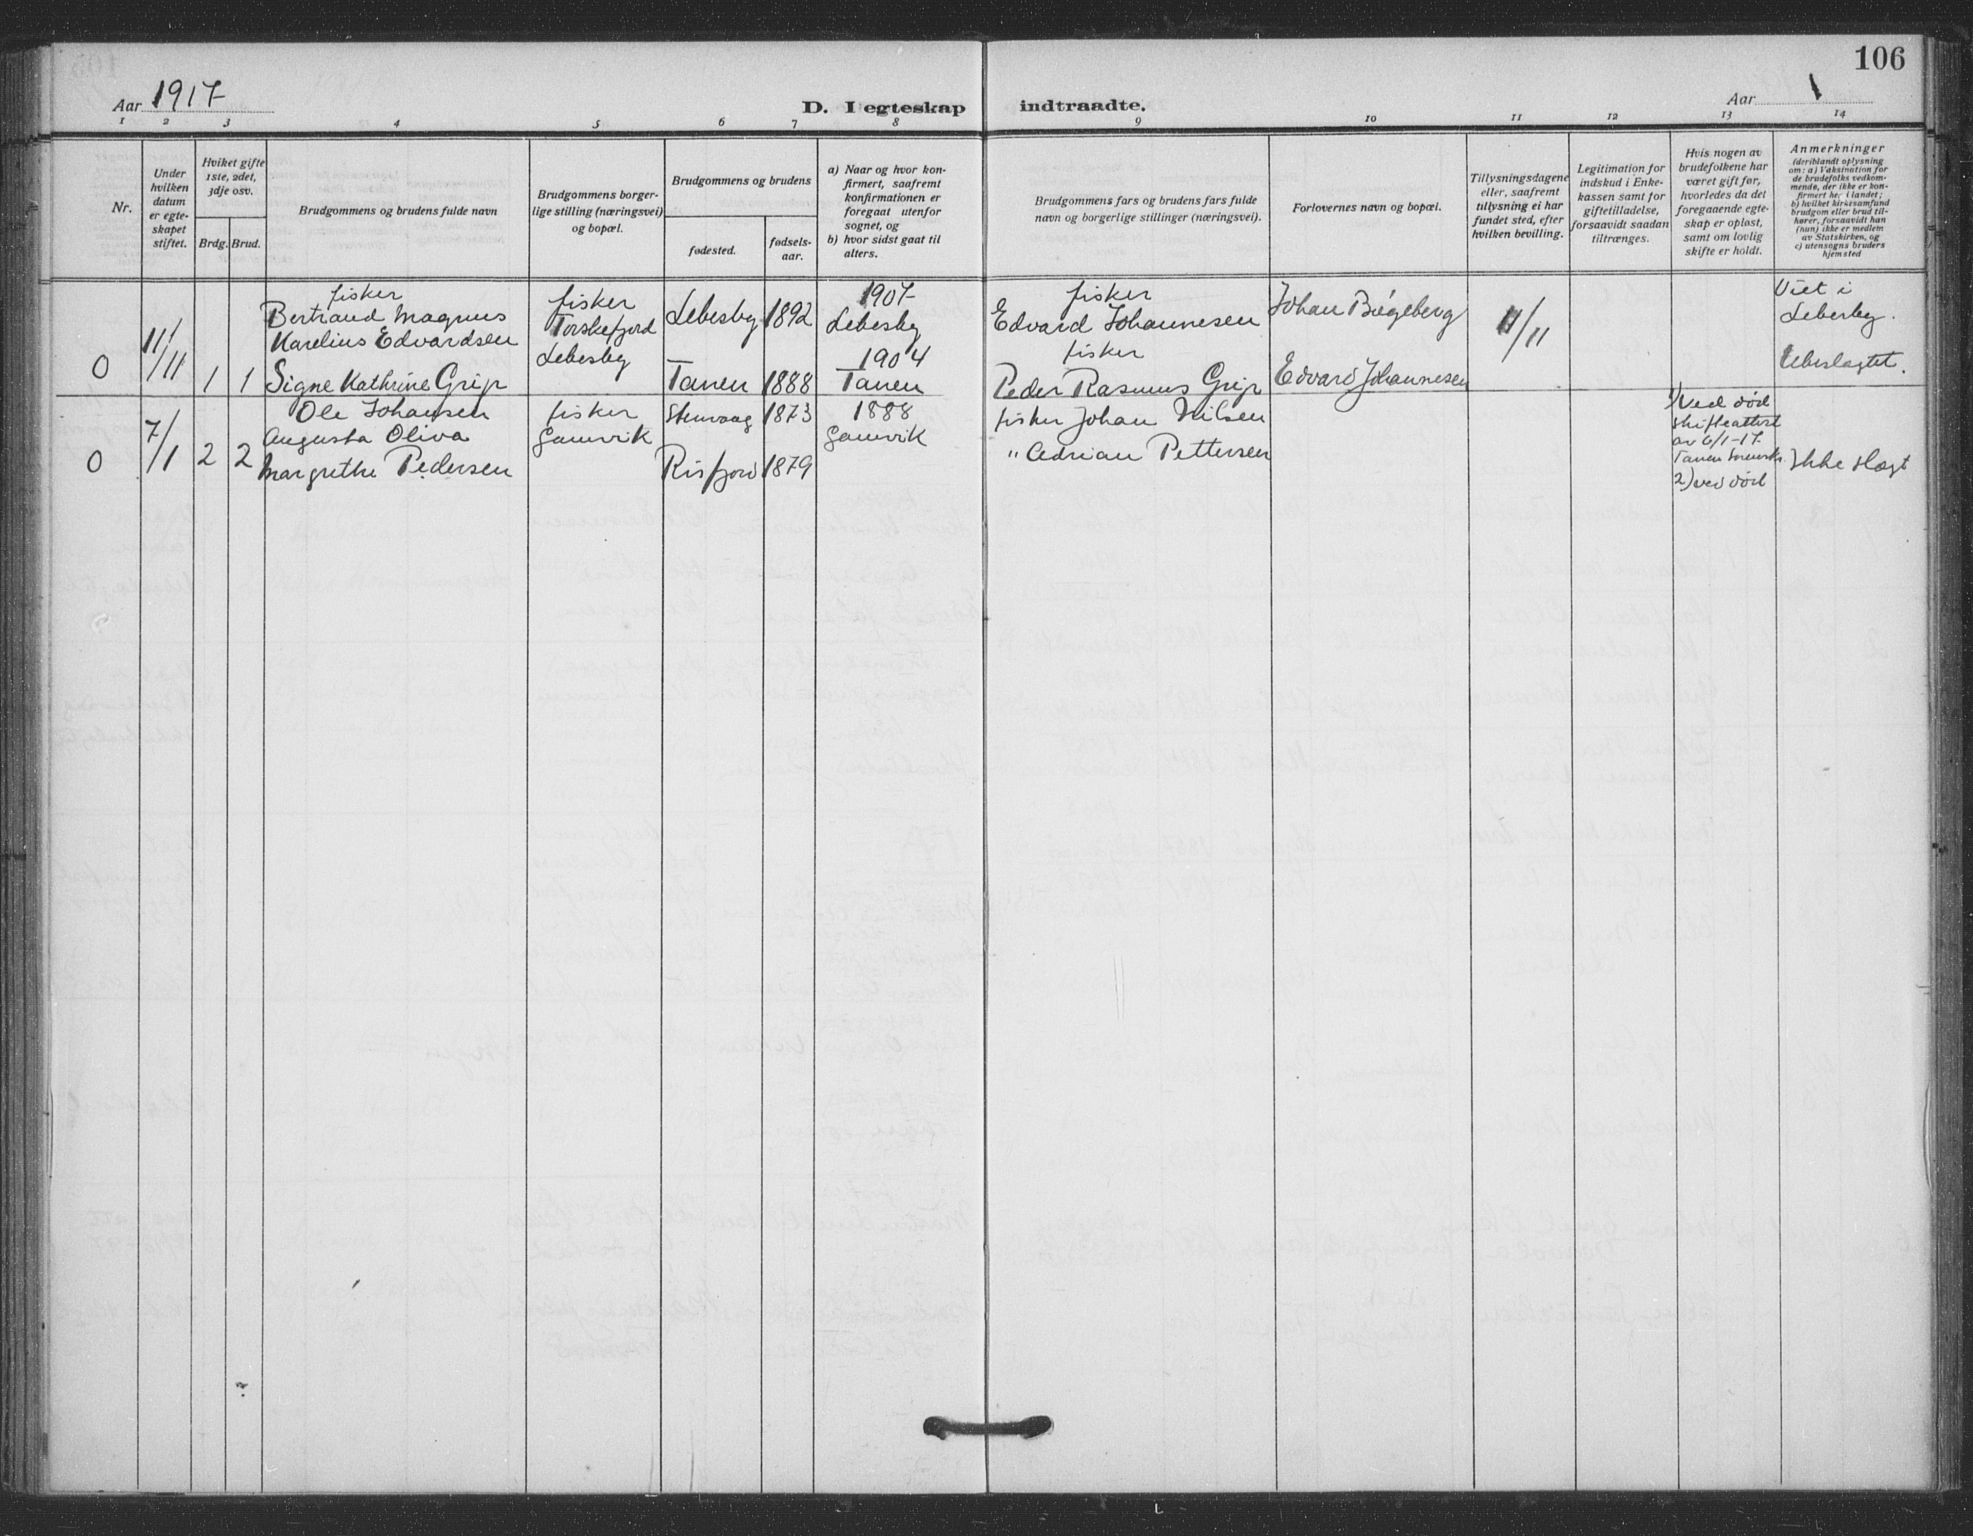 106
Aar 1917
D. I egteskap indtraadte.
Aar 1
1 2 3 4 5 6 7 8 9 10 11 12 13 14
Nr.
Under
hvilken
datum
er egte-
skapet
stiftet.
Hviket gifte
1ste, 2det,
3dje osv.
Brdg. Brud.
Brudgommens og brudens fulde navn
Brudgommens borger-
lige stilling (næringsvei)
og bopæl.
Brudgommens og brudens
fødested.
fødsels-
aar.
a) Naar og hvor kon-
firmert, saafremt
konfirmationen er
foregaat utenfor
sognet, og
b) hvor sidst gaat til
alters.
Brudgommens fars og brudens fars fulde
navn og borgerlige stillinger (næringsvei).
Forlovernes navn og bopæl.
Tillysningsdagene
eller, saafremt
tillysning ei har
fundet sted, efter
hvilken bevilling.
Legitimation for
indskud i Enke-
kassen samt for
giftetilladelse,
forsaavidt saadan
tiltrænges.
Hvis nogen av
brudefolkene har
været gift før,
hvorledes da det
foregaaende egte-
skap er opløst,
samt om lovlig
skifte er holdt.
Anmerkninger
(deriblandt oplysning
om: a) Vaksination for
de brudefolks vedkom-
mende, der ikke er kon-
firmert her i landet;
b) hvilket kirkesamfund
brudgom eller brud til-
hører, forsaavidt han
(hun) ikke er medlem
av Statskirken, og
c) utensogns bruders
hjemsted
0
11/11
1 1
fisker
Bertrand Magnus
Karelius Edvardsen
Signe Kathrine Grip
fisker
Torskefjord
Lebesby
Lebesby 1892
Tanen 1888
1907
Lebesby
1904
Tanen
fisker
Edvard Johannesen
fisker
Peder Rasmus Grip
Johan Bigeberg
Edvard Johannesen
11/11
Viet i
Lebesby.
Ubeslagtet.
0
7/1
2 2
Ole Johansen
Augusta Oliva
Margrethe Pedersen
fisker
Gamvik
Stenvaag 1873
Risfjord 1879
1888
Gamvik
fisker Johan Nilsen
" Adrian Pettersen
1) Ved død
skifteattest
av 6/1-17
Tanen
2) ved død
Ikke slægt